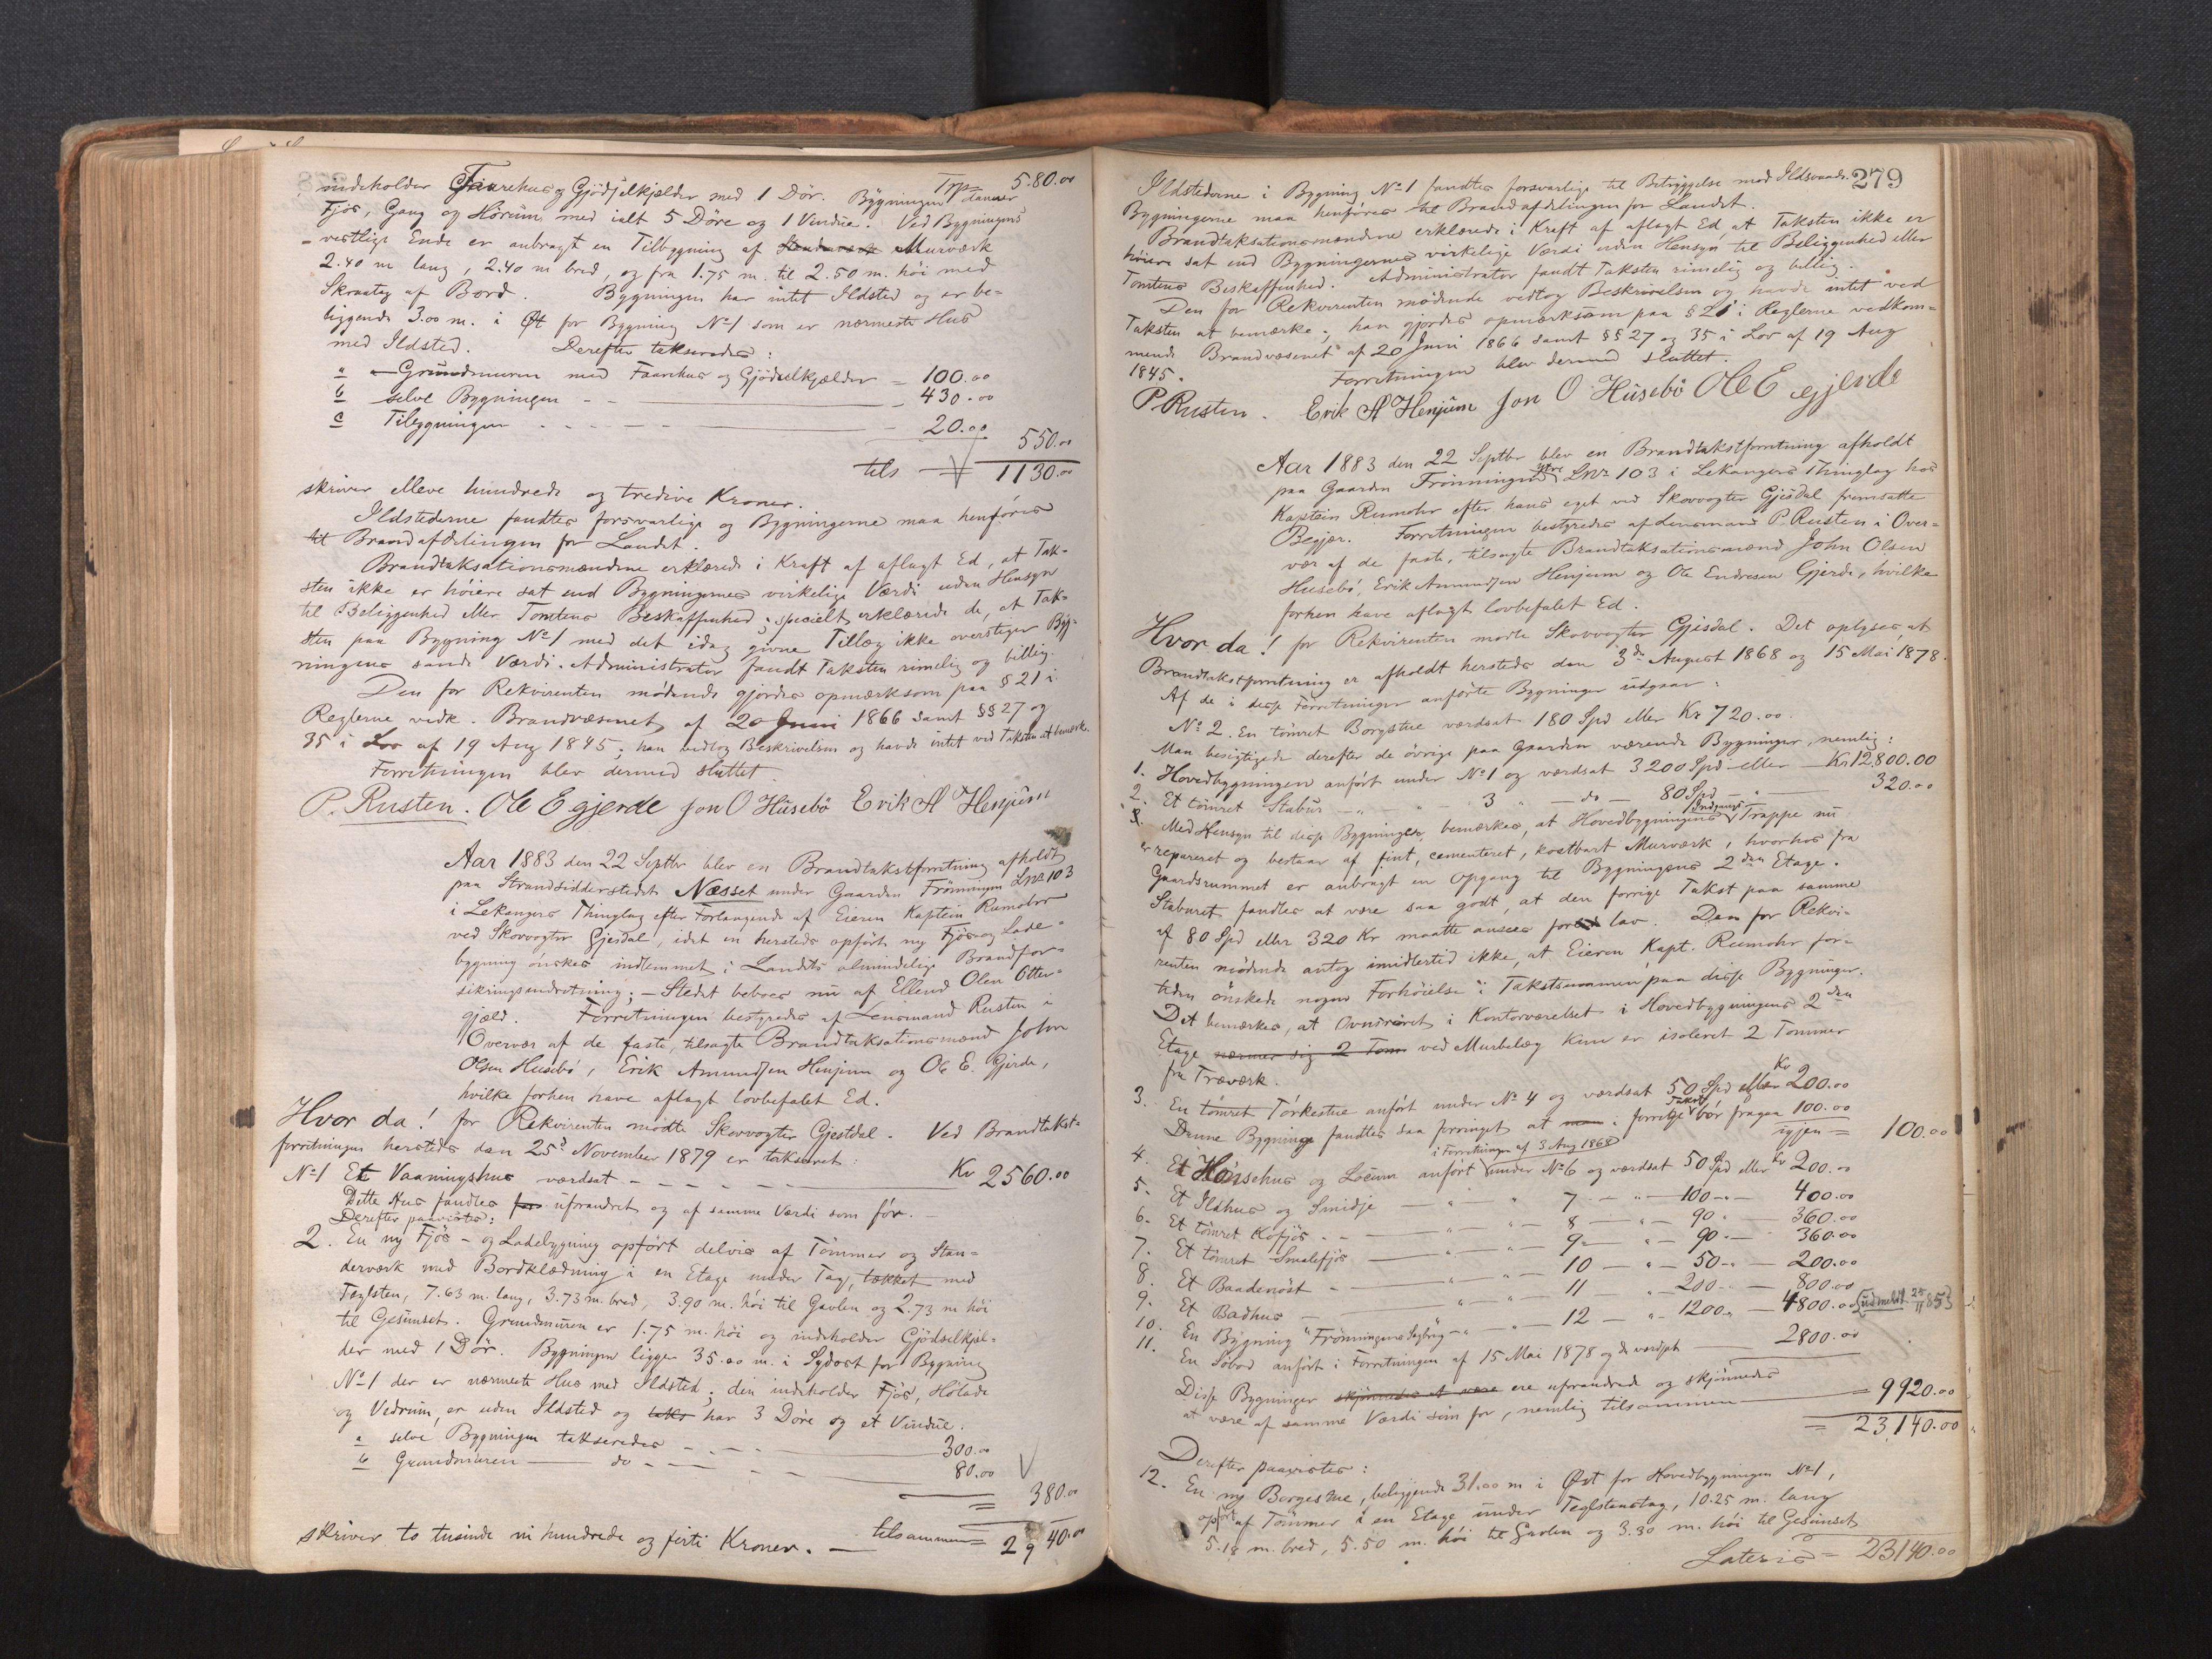 Trp= 580.00
indeholder Faarehus og Gjödselkjelder med 1 Dör. Bygningen danner
Fjös, Gang og Hörum med ialt 5 Döre og 1 Vindue. Ved Bygningens
vestlige Ende er anbragt en Tilbygning af Murværk
2.40 m lang, 2.40 m bred, og fra 1.75 m. til 2.50 m. höi med
Skraatag af Bord. Bygningen har intet Ildsted og er be-
liggende 3.00 m. i Øst for Bygning No 1 som er nærmeste Hus
med Ildsted. Derefter takseredes:
a Grundmuren med Faarehus og Gjödselkjælder = 100.00
b selve Bygningen - - 430.00
c Tilbygningen - - - - - 20.00
550.00
tils 1130.00
skriver elleve hundrede og tredive Kroner.
Ildstederne fandtes forsvarlige og Bygningerne maa henföres
til Brandafdelingen for Landet.
Brandtaksationsmændene erklærede i Kraft af aflagt Ed, at Tak-
sten ikke er höiere sat end Bygningernes virkelige Værdi uden Hensyn
til Beliggenhed eller Tomtens Beskaffenhed; specielt erklærede de, at Tak-
sten paa Bygning No 1 med det idag givne Tillæg ikke overstiger Byg-
ningens sande Værdi. Administrator fandt Taksten rimelig og billig.
Den for Rekvirenten mödende gjordes opmærksom paa § 21 i
Reglerne vedk. Brandvæsenet af 20 Juni 1866 samt §§ 27 og
35 i Lov af 19 Aug 1845; han vedtog Beskrivelsen og havde intet ved Taksten at bemærke.
Forretningen blev dermed sluttet.
P. Rusten. Ole E gjerde Jon O Húsebö Erik A Henjùm
Aar 1883 den 22 Septbr blev en Brandtakstforretning afholdt
paa Strandsidderstedet Næsset under Gaarden Frönningen LNr 103
i Lekangers Thinglag efter Forlangende af Eieren Kaptein Rumohr
ved Skovvogter Gjesdal, idet en hersteds opfört ny Fjös og Lade-
bygning önskes indlemmet i Landets almindelige Brandfor-
sikringsindretning; - Stedet beboes nu af Ellend Olsen Otter-
gjæld. Forretningen bestyredes af Lensmand Rusten i
Overvær af de faste, tilsagte Brandtaksationsmænd John
Olsen Husebö, Erik Amundsen Henjum og Ole E. Gjerde,
hvilke forhen have aflagt lovbefalet Ed.
Hvor da! for Rekvirenten mödte Skovvogter Gjestdal. Ved Brandtakst-
forretningen hersteds den 25de November 1879 er takseret:
No 1 Et Vaaningshus værdsat - - - - Kr 2560.00
Dette Hus fandtes for uforandret og af samme Værdi som för.
Derefter paavistes:
2. En ny Fjös- og Ladebygning opfört delvis af Tömmer og Stan-
derværk med Bordklædning i en Etage under Tag, tækket med
Teglsten, 7.63 m. lang, 3.73 m. bred, 3.90 m. höi til Gavlen og 2.73 m höi
til Gesimset. Grundmuren er 1.75 m. höi og indeholder Gjödselkjel-
der med 1 Dör. Bygningen ligger 35.00 m. i Sydost for Bygning
No 1 der er nærmeste Hus med Ildsted; den indeholder Fjös, Hölade
og Vedrum, er uden Ildsted og taks har 3 Döre og et Vindue.
a selve Bygningen takseredes - - - 300.00
b Grundmuren - do - - - - 80.00
= 380.00
skriver to tusinde ni hundrede og firti Kroner. - tilsammen = 2940.00
279
Ildstederne i Bygning No 1 fandtes forsvarlige til Betryggelse mod Ildsvaade.
Bygningerne maa henföres til Brandafdelingen for Landet.
Brandtaksationsmændene erklærede i Kraft af aflagt Ed at Taksten ikke er
höiere sat end Bygningernes virkelige Værdi uden Hensyn til Beliggenhed eller
Tomtens Beskaffenhed. Administrator fandt Taksten rimelig og billig.
Den for Rekvirenten mödende vedtog Beskrivelsen og havde intet ved
Taksten at bemærke; han gjordes opmærksom paa § 21 i Reglerne vedkom-
mende Brandvæsenet af 20 Juni 1866 samt §§ 27 og 35 i Lov af 19 Aug
1845. Forretningen blev dermed sluttet.
P Rusten. Erik A Henjùm Jon O Húsebö Ole E gjerde
Aar 1883 den 22 Septbr blev en Brandtakstforretning afholdt
paa Gaarden Frönningen ytre LNr 103 i Lekangers Thinglag hos
Kaptein Rumohr efter hans eget ved Skovvogter Gjesdal fremsatte
Begjær. Forretningen bestyredes af Lensmand P. Rusten i Over-
vær af de faste, tilsagte Brandtaksationsmænd John Olsen
Husebö, Erik Amundsen Henjum og Ole Endresen Gjerde, hvilke
forhen have aflagt lovbefalet Ed.
Hvor da! for Rekvirenten mödte Skovvogter Gjesdal. Det oplyses, at
Brandtakstforretning er afholdt hersteds den 3de August 1868 og 15 Mai 1878.
Af de i disse Forretninger anförte Bygninger udgaar:
No 2. En tömret Borgstue værdsat 180 Spd eller Kr 720.00.
Man besigtigede derefter de övrige paa Gaarden værende Bygninger, nemlig:
1. Hovedbygningen anfört under No 1 og værdsat 3200 Spd eller - Kr 12,800.00
2. Et tömret Stabur - " - " - 3 " - do - 80 Spd - " - 320.00
Med Hensyn til disse Bygninger bemærkes, at Hovedbygningens Indgangs Trappe nu
er repareret og bestaar af fint, cementeret, kostbart Murværk, hvorhos fra
Gaardsrummet er anbragt en Opgang til Bygningens 2den Etage.
Staburet fandtes at være saa godt, at den forrige Takst paa samme
af 80 Spd eller 320 Kr maatte ansees for lav. Den for Rekvi-
renten mödende antog imidlertid ikke, at Eieren Kapt. Rumohr for-
tiden önskede nogen Forhöielse i Takstsummen paa disse Bygninger.
Det bemærkes, at Ovnsröret i Kontorværelset i Hovedbygningens 2den
Etage nærmer sig 2 Tom ved Murbelæg kun er isoleret 2 Tommer
fra Træværk.
3. En tömret Törkestue anfört under No 4 og værdsat 50 Spd eller Kr 200.00
Denne Bygning fandtes saa forringet at man i forrige Takst bör fragaa 100.00
igjen = 100.00
i Forretningen af 3 Aug 1868
4. Et Hönsehus og Locum anfört under No 6 og værdsat 50 Spd eller Kr 200.00
5. Et Ildhus og Smidje - " - " 7 - " - 100 - " - 400.00
6. Et tömret Kofjös - - " - " - 8 - " - 90 " - 360.00
7. Et tömret Smalefjös - " - " - 9 - " - 90 " - 360.00
8. Et Baadenöst - " - " - 10 - " - 50 - " - 200.00
9. Et Badhus - " - " - 11 " - 200 - - 800.00
10. En Bygning "Frönningens Sagbrug - " - " - 12 - " - 1200 - 4800.00 (udmeldt 25/11 85)
11. En Söbod anfört i Forretningen af 15 Mai 1878 og da værdsat - 2800.00
Disse Bygninger skjönnedes at være ere uforandrede og skjönnedes
at være af samme Værdi som för, nemlig tilsammen = 9920.00
= 23,140.00
Derefter paavistes:
12. En ny Borgestue, beliggende 31.00 m i Øst for Hovedbygningen No 1,
opfört af Tömmer i en Etage under Teglstenstag, 10.25 m. lang
5.18 m. bred, 5.50 m. höi til Gavlen og 3.30 m. höi til Gesimset
Lateris = 23140.00